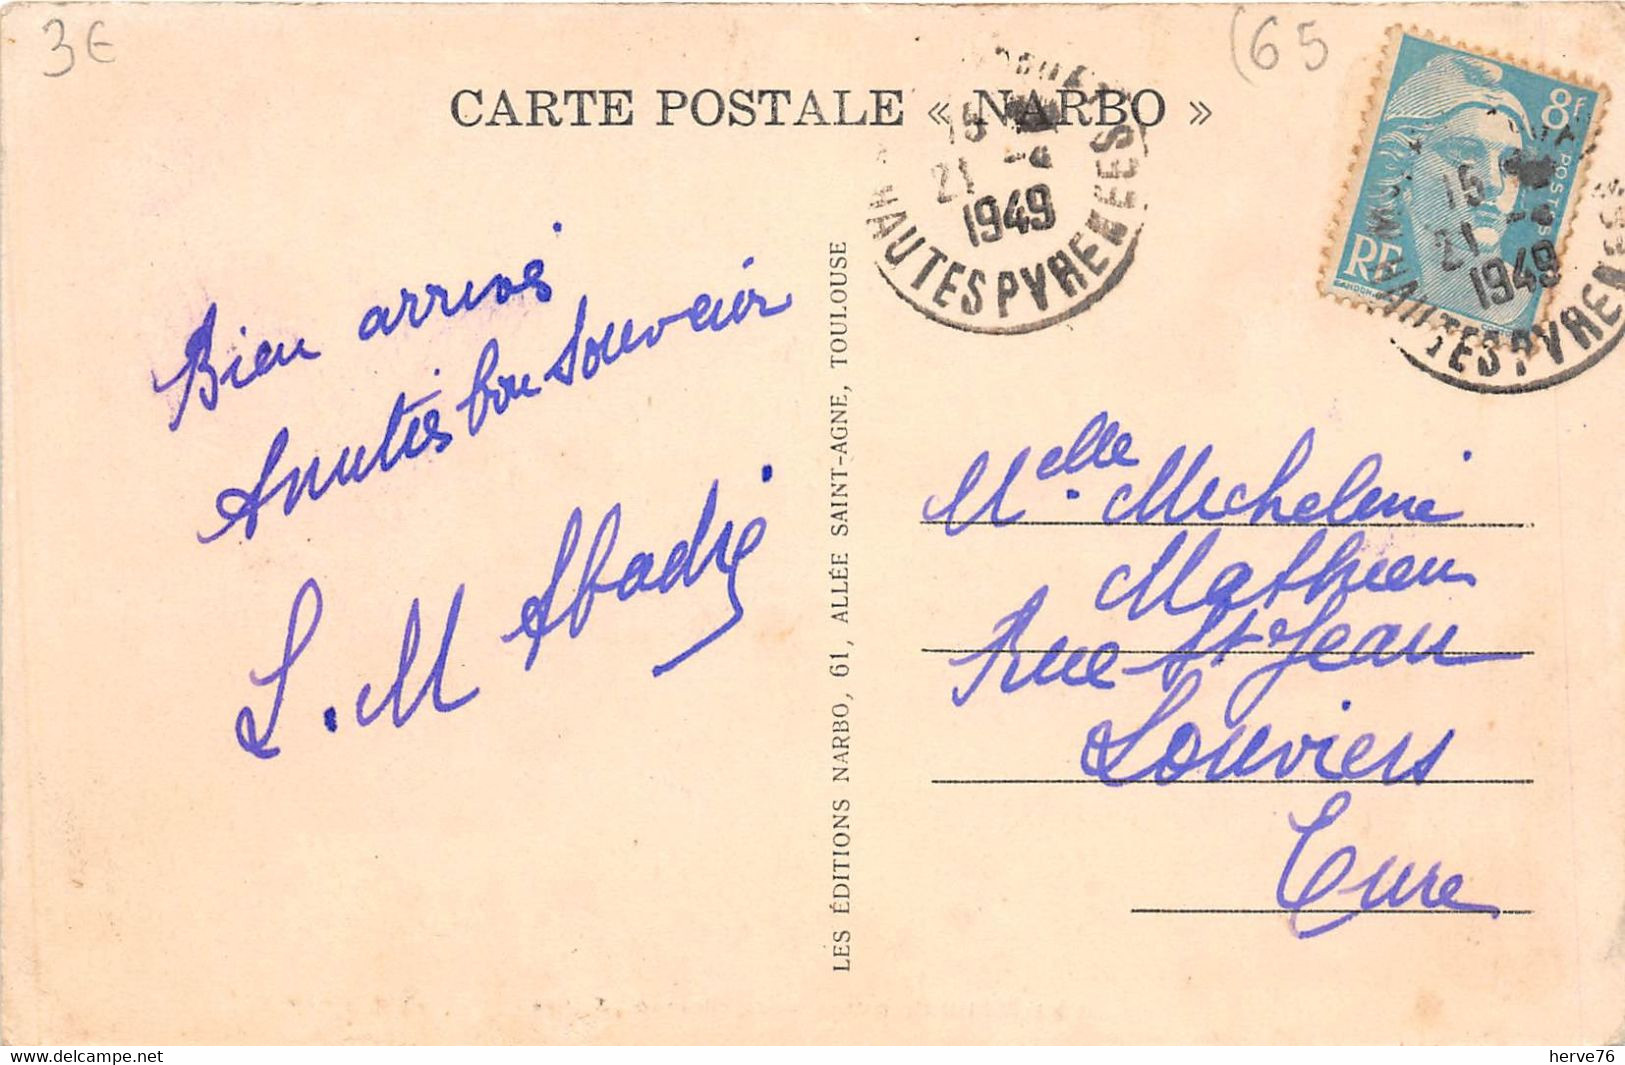 3€
(65
CARTE POSTALE « NARBO »
15
21 - 2
1949
HAUTES PYRENEES
8F
POSTES
RF
GANDON
15
21 - 2
1949
HAUTES PYRENEES
Bien arrivés
Amitiés bon Souvenir
L. M Abadie
LES ÉDITIONS NARBO, 61, ALLÉE SAINT-AGNE, TOULOUSE
Melle Micheline
Mathieu
Rue St Jean
Louviers
Eure
www.delcampe.net
herve76